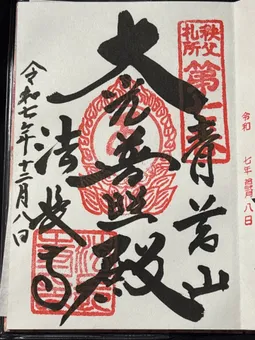 令和 七年 八日
秩父
札所
第
青苔山
大光普照殿
法長寺
令和七年十二月八日